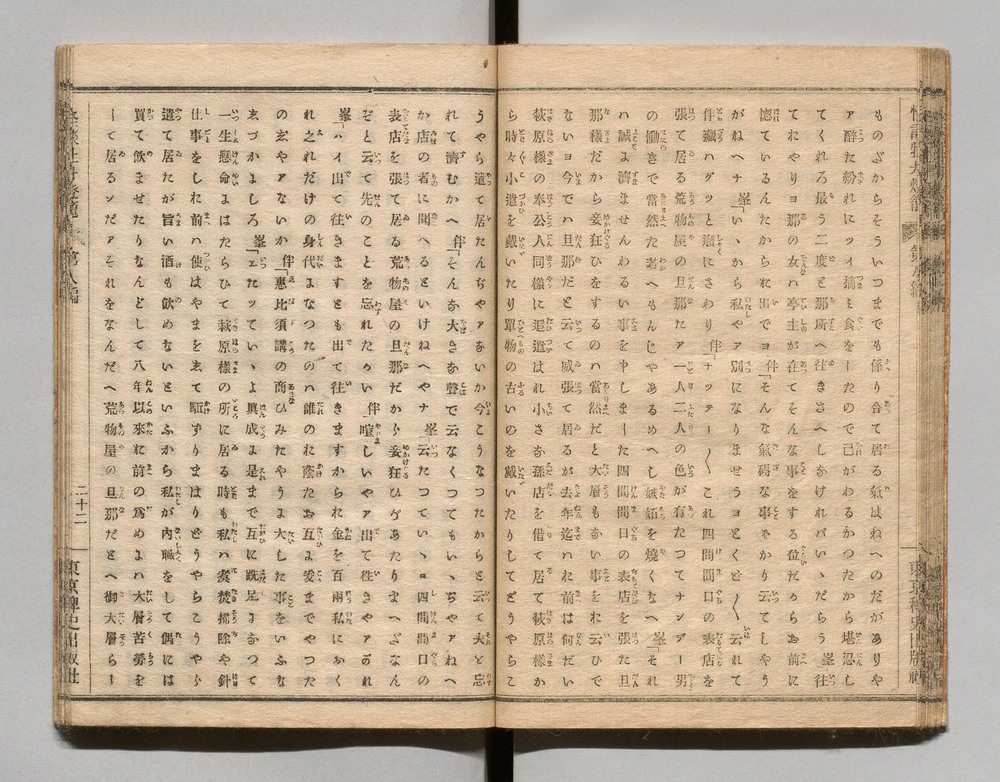 ものだからそういつまでも係り合て居る氣はねへのだがありや
ア醉た紛れにツイ摘ミ食をしたので己がわるかつたから堪忍し
てくれろ最う二度と那所へ往きさへしなけれバいゝだらう峯往
てれやりヨ那の女ハ亭主が在てそんな事をする位だからお前に
惚ているんたかられ出でヨ伴そんな氣碍な事をかり云てしやう
がねヘナ峯いゝから私やア別になりませうヨとくど〳〵云れて
伴藏ハグツと癪にさわり伴ナツテー〳〵これ四間間口の表店を
張て居る荒物屋の旦那たア一人二人の色が有たつてナンデー男
の働きで當然た若へもんじやあるめへし嫉妬を燒くなへ峯それ
ハ誠よ濟ませんわるい事を申しました四間間口の表店を張た旦
那樣だから妾狂ひをするのハ當然だと大層もない事をれ云ひで
ないヨ今でハ旦那だと云て威張て居るが去年迄ハれ前は何だい
萩原樣の奉公人同樣に追遣はれ小さな孫店を借て居て萩原樣か
ら時々小遣を戴いたり單物の古いのを戴いたりしてどうやらこ
うやら遣て居たんぢやアないか今こうなつたからと云て夫と忘
れて濟むかへ伴そんな大きな聲で云なくつてもいゝぢやアねへ
か店の者に聞へるといけねへやナ峯云たつていゝヨ四間間口の
表店を張て居る荒物屋の旦那だから妾狂ひヴあたりまへざなん
ぞと云て先のことを忘れたかい伴喧しいやア出て徃きやアがれ
峯ハイ出て往きますとも出て往きますかられ金を百兩私におく
れ之れだけの身代よなつたのハ誰のれ蔭たお互よ爰までやつた
のだやアないか伴惠比須講の商ひみたやうよ大した事をいふな
しづかよしろ峯ヱたッていゝよ眞成よ是まで互に跣足よなつて
一生懸命よはたらひて萩原樣の所に居る時も私ハ煮焚掃除や針
仕事をしれ前ハ使はやまをして駈ずりまはりどうやらこうやら
遣て居たが旨い酒も飮めないといふから私が內職をして偶には
買て飮ませたりなんどして八年以來れ前の爲めよハ大層苦勞を
して居るンだアそれをなんだへ荒物屋の旦那だとへ御大層らし
第八編
二十二
東京稗史出版社